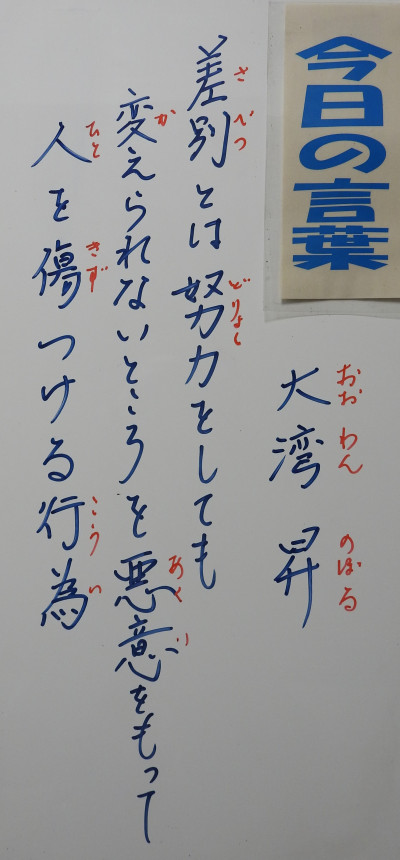 今日の言葉
大湾 昇
おお わん のぼる
差別とは努力をしても
さ べつ どりょく
変えられないところを悪意をもって
か あく い
人を傷つける行為
ひと きず こう い